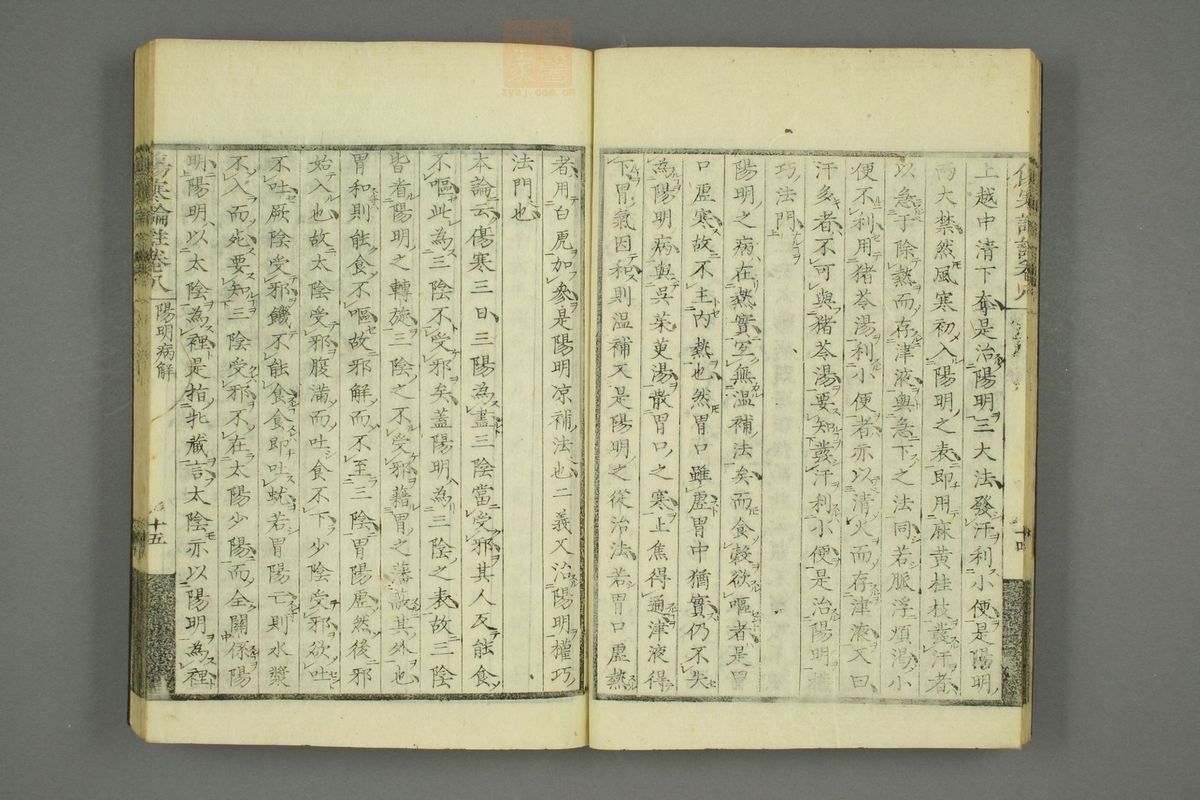 上越中清下奪是治陽明三大法發汗利小便是陽明
兩大禁然風寒初入陽明之表即用麻黃桂枝發汗者
以急于除熱而存津液與急下之法同若脈浮煩渴小
便不利用猪苓湯利小便者亦以清火而存津液又曰
汗多者不可與猪苓湯要知發汗利小便是治陽明
巧法門
陽明之病在熱實宜無溫補法矣而食穀欲嘔者是胃
口虛寒故不主內熱也然胃口雖虛胃中猶實仍不失
為陽明病與吳茱萸湯散胃口之寒上焦得通津液得
下胃氣因和則溫補又是陽明之從治法若胃口虛熱
傷寒論註卷八
陽明病解
十五
者用白虎加參是陽明凉補法也二義又治陽明權巧
法門也
本論云傷寒三日三陽為盡三陰當受邪其人反能食
不嘔此為三陰不受邪矣蓋陽明為三陰之表故三陰
皆看陽明之轉旋三陰之不受邪藉胃之藩蔽其外也
胃和則能食不嘔故邪解而不至三陰胃陽虛然後邪
始入也故太陰受邪腹滿而吐食不下少陰受邪欲吐
不吐厥陰受邪饑不能食食即吐蚘若胃陽亡則水漿
不入而死要知三陰受邪不在太陽少陽而全關係陽
明陽明以太陰為裡是指牝藏言太陰亦以陽明為裡